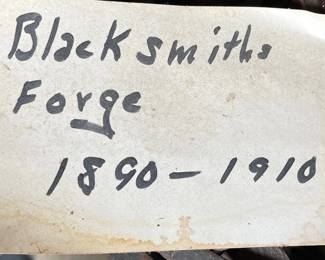 Blacksmiths
Forge
1890-1910